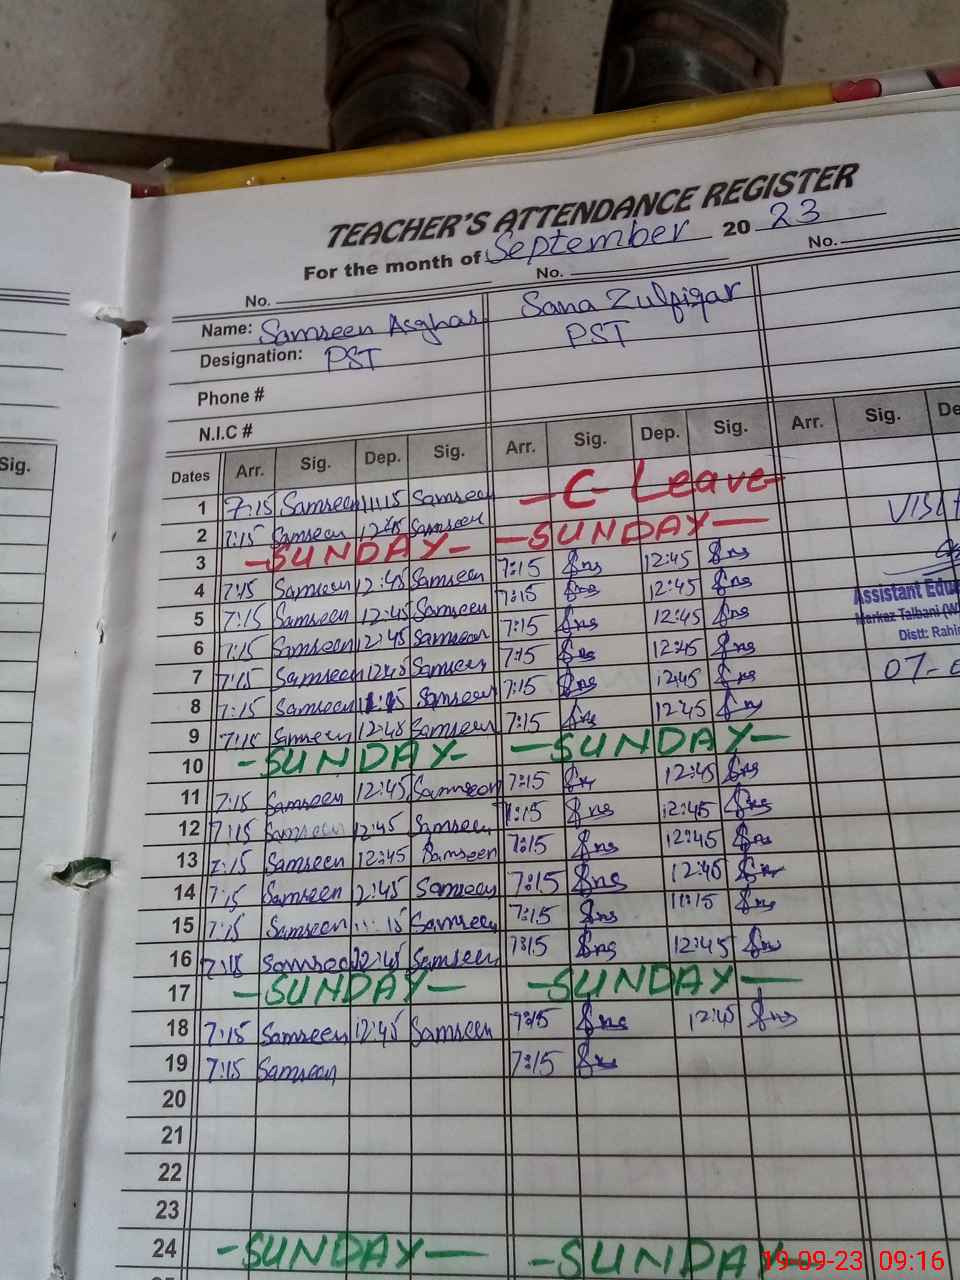 TEACHER'S ATTENDANCE REGISTER
For the month of September 20 23
No. No. No.
Name: Samreen Asghar Sana Zulfiqar
Designation: PST PST
Phone #
N.I.C #
Sig. Dates Arr. Sig. Dep. Sig. Arr. Sig. Dep. Sig. Arr. Sig. De
1 7:15 Samreen 11:15 Samreen - C- Leave-
2 7:15 Samreen 12:45 Samreen
3 -SUNDAY- -SUNDAY-
4 7:15 Samreen 12:45 Samreen 7:15 12:45
5 7:15 Samreen 12:45 Samreen 7:15 12:45
6 7:15 Samreen 12:45 Samreen 7:15 12:45
7 7:15 Samreen 12:45 Samreen 7:15 12:45
8 7:15 Samreen 11:15 Samreen 7:15 12:45
9 7:15 Samreen 12:45 Samreen 7:15 12:45
10 -SUNDAY- -SUNDAY-
11 7:15 Samreen 12:45 Samreen 7:15 12:45
12 7:15 Samreen 12:45 Samreen 7:15 12:45
13 7:15 Samreen 12:45 Samreen 7:15 12:45
14 7:15 Samreen 2:45 Samreen 7:15 12:45
15 7:15 Samreen 11:15 Samreen 7:15 11:15
16 7:15 Samreen 12:45 Samreen 7:15 12:45
17 -SUNDAY- -SUNDAY-
18 7:15 Samreen 12:45 Samreen 7:15 12:45
19 7:15 Samreen 7:15
20
21
22
23
24 -SUNDAY- -SUNDAY-
Assistant Edu
Markaz Talbani (W
Distt: Rahi
07-0
19-09-23 09:16